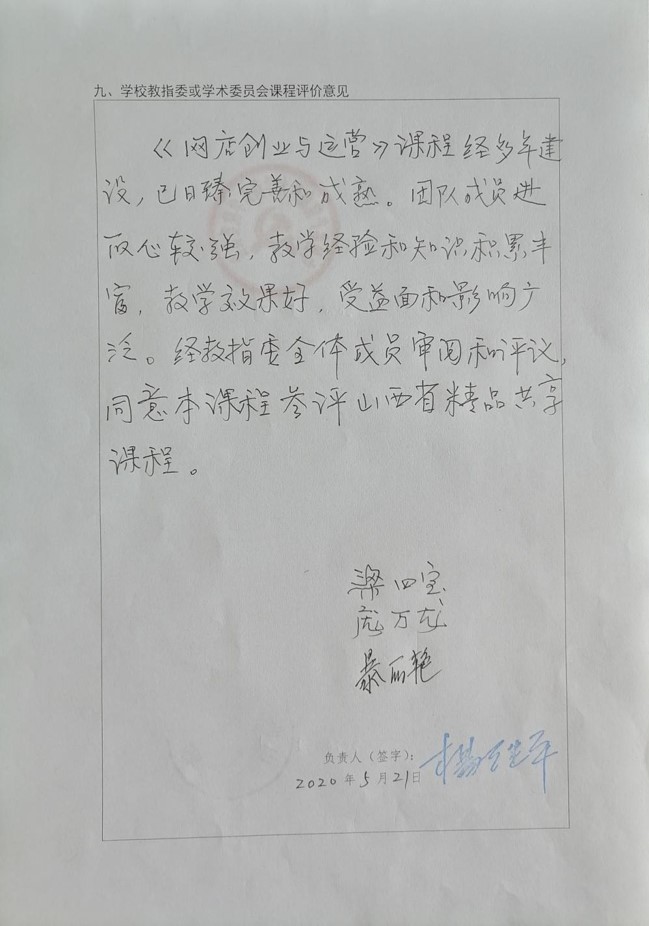 九、学校教指委或学术委员会课程评价意见
《网店创业与运营》课程经多年建
设，已日臻完善和成熟。团队成员进
取心较强，教学经验和知识积累丰
富，教学效果好，受益面和影响广
泛。经教指委全体成员审阅和评议，
同意本课程参评山西省精品共享
课程。
梁四宝
庞万龙
暴丽艳
负责人（签字）：
2020年5月21日